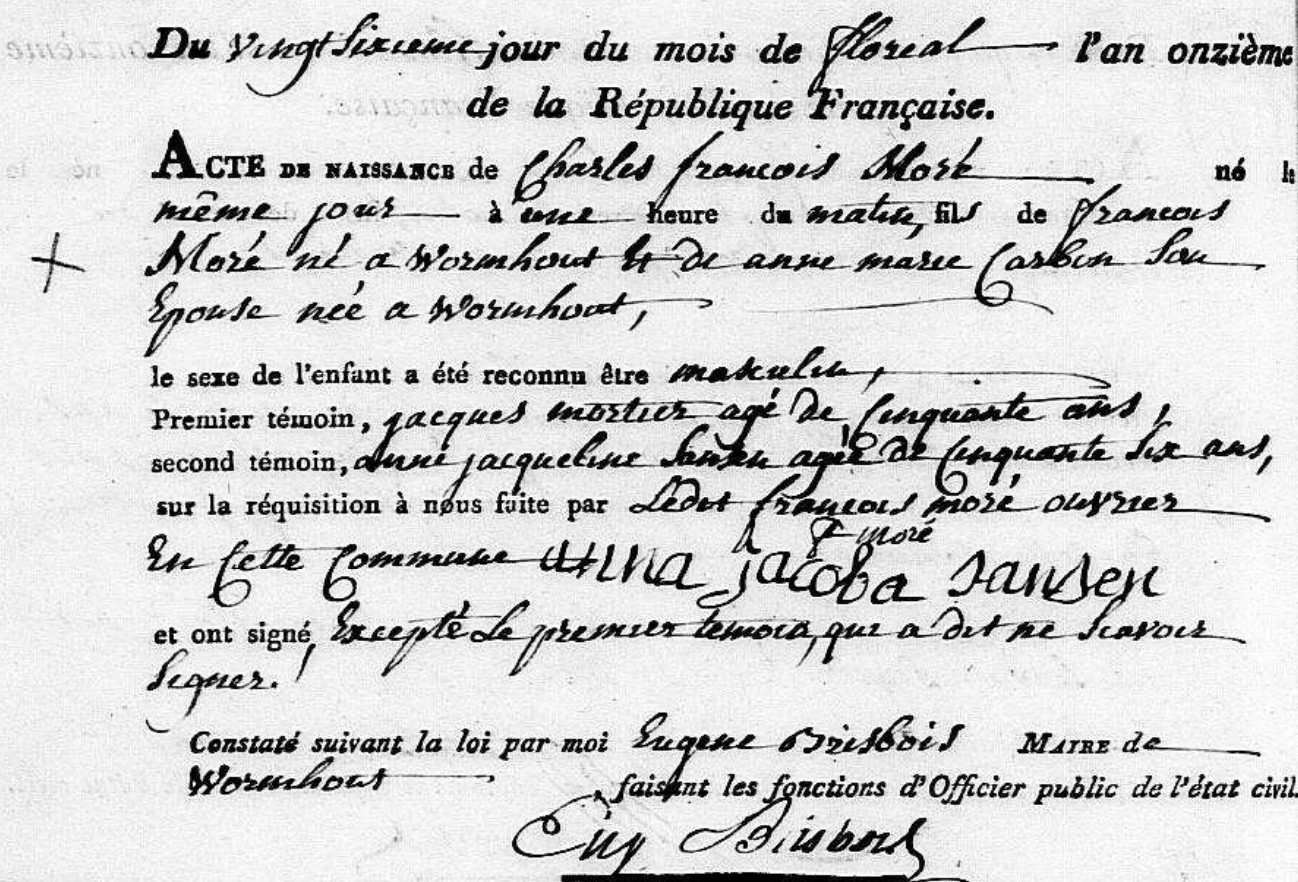 Du vingt sixieme jour du mois de floreal l'an onzième
de la République Française.
ACTE DE NAISSANCE de Charles francois Moré né le
même jour à une heure du matin, fils de francois
Moré né a Wormhout Et de anne marie Carbon Son
Epouse née a Wormhout,
le sexe de l'enfant a été reconnu être masculin,
Premier témoin, jacques mortier agé De Cinquante ans,
second témoin, anne jacqueline Sansen agée De Cinquante Six ans,
sur la réquisition à nous faite par Ledit francois moré ouvrier
F moré
En Cette Commune anna jacoba sansen
et ont signé Excepté Le premier temoin, qui a Dit ne Scavoir
Signer.
Constaté suivant la loi par moi Eugene Brisbois MAIRE de
Wormhout faisant les fonctions d'Officier public de l'état civil.
Eug Brisbois